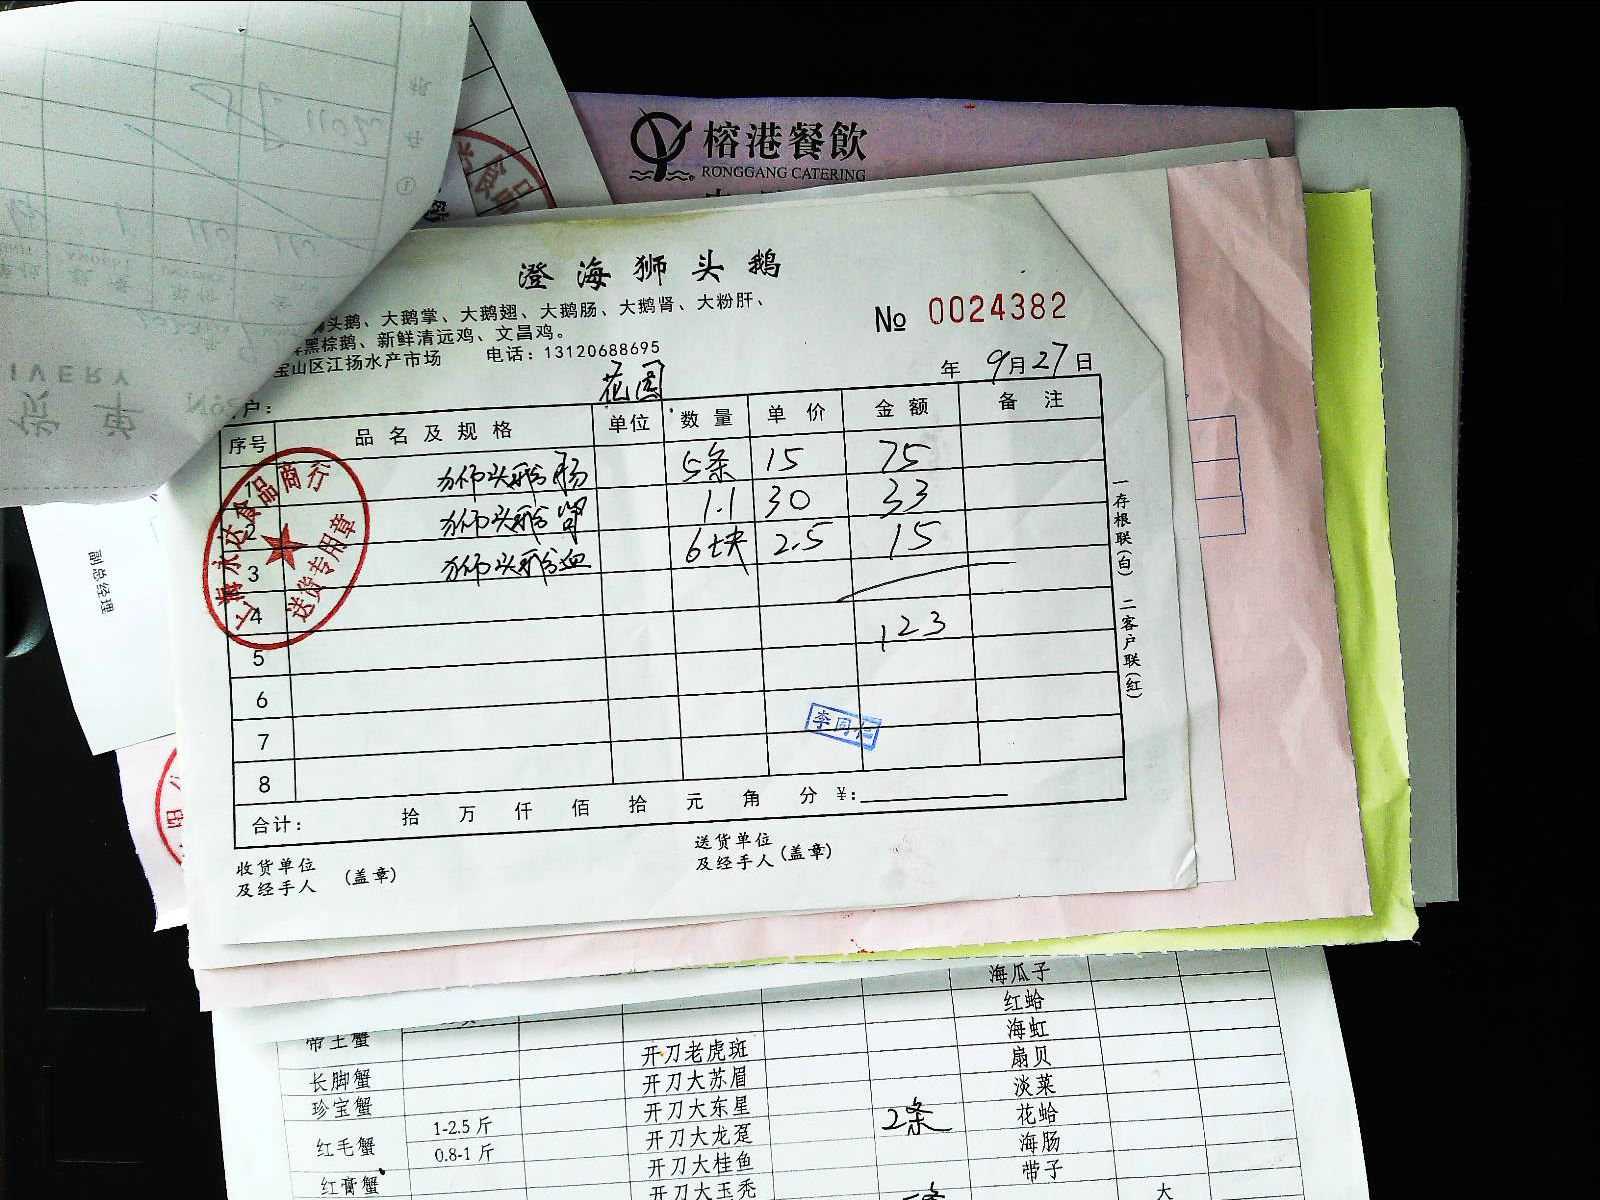 榕港餐飲
RONGGANG CATERING
澄海狮头鹅
狮头鹅、大鹅掌、大鹅翅、大鹅肠、大鹅肾、大粉肝、
黑棕鹅、新鲜清远鸡、文昌鸡。
宝山区江扬水产市场 电话:13120688695
№ 0024382
年 9月27日
户: 花园
序号 品名及规格 单位 数量 单价 金额 备注
狮头鹅肠 5条 15 75
2 狮头鹅肾 1.1 30 33
3 狮头鹅血 6块 2.5 15
4
5 123
6
7
8
合计: 拾 万 仟 佰 拾 元 角 分 ¥:
收货单位
及经手人 (盖章)
送货单位
及经手人 (盖章)
一存根联(白) 二客户联(红)
上海永达食品商行
送货专用章
副总经理
海瓜子
红蛤
帝王蟹 海虹
开刀老虎斑 扇贝
长脚蟹 开刀大苏眉 淡菜
珍宝蟹 开刀大东星 2条 花蛤
红毛蟹 1-2.5斤 开刀大龙趸 海肠
0.8-1斤 开刀大桂鱼 带子
红膏蟹 开刀大玉秃 大